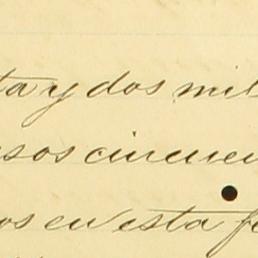 ta y dos mil
sos cincuen
os en esta fe